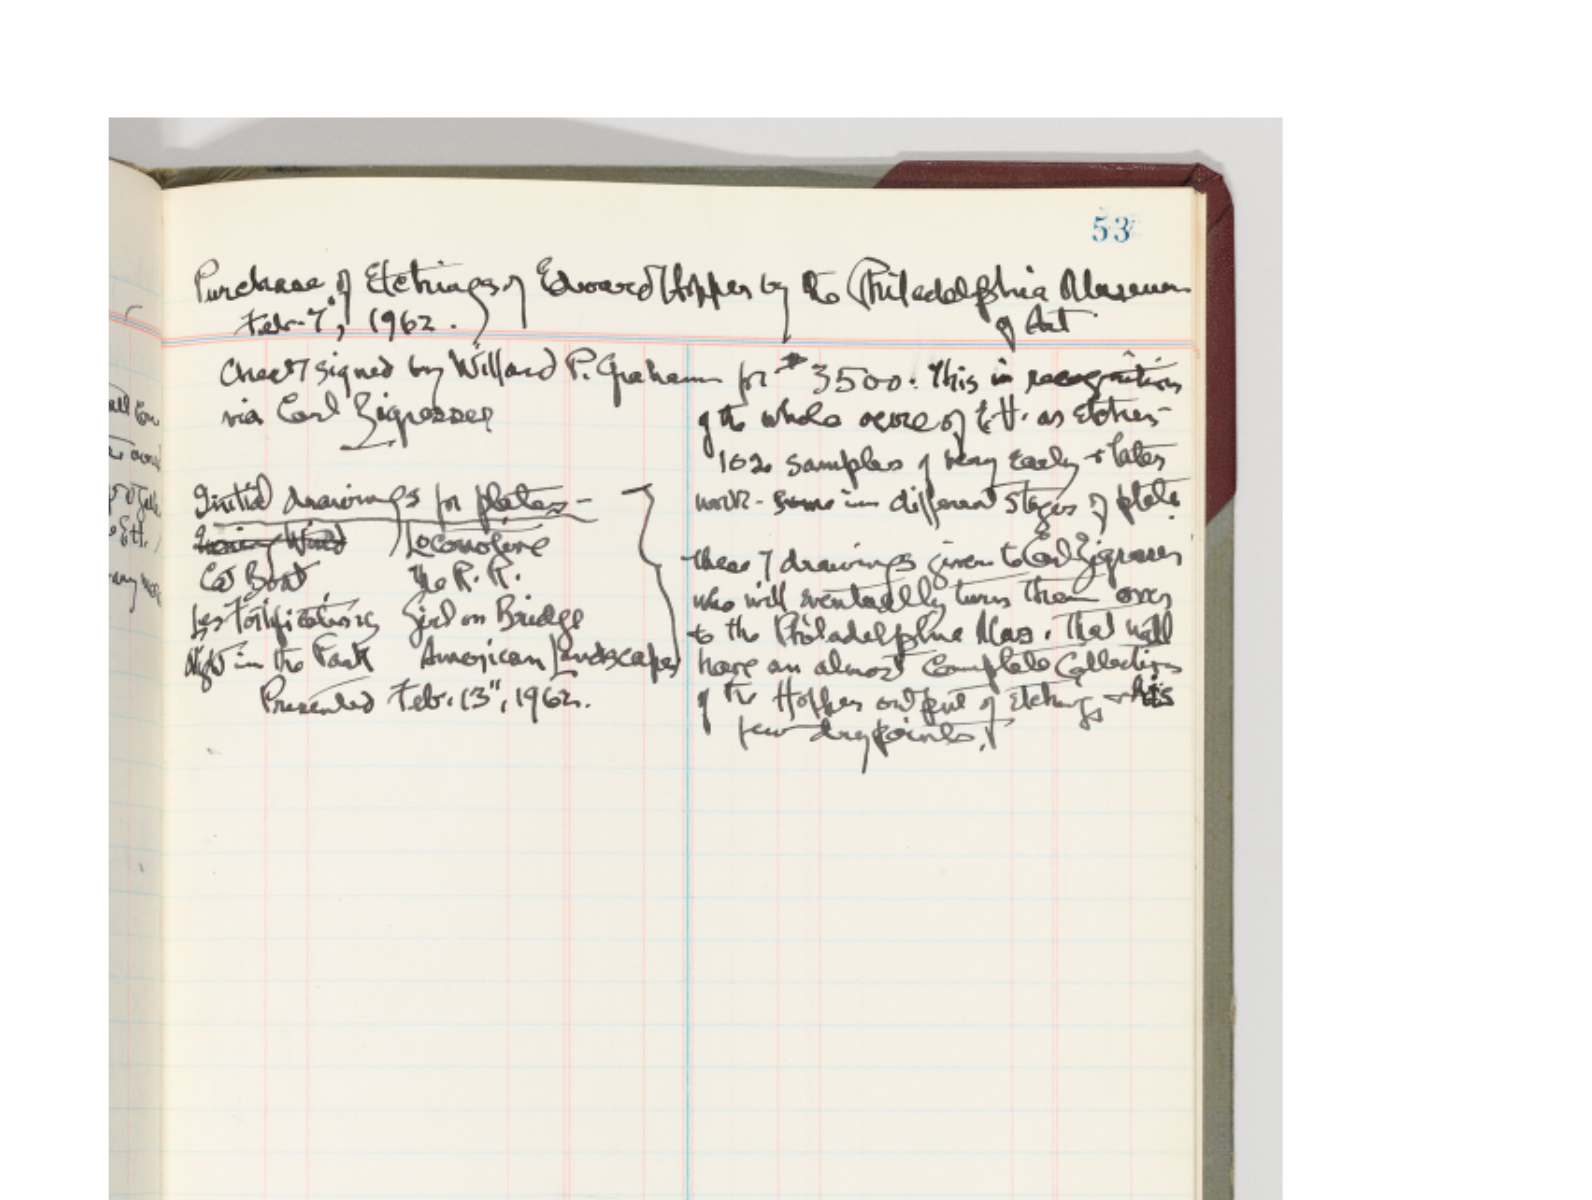 53
Purchase of Etchings of Edward Hopper by the Philadelphia Museum
Feb. 7", 1962.
of Art
Check signed by Willard P. Graham for $3500. This in recognition
via Carl Zigrosser
of the whole oevre of E.H. as Etcher-
102 samples of very early + later
work - some in different stages of plate.
Initial drawings for plates-
Locomotive
Cat Boat
The R.R.
Les Fortifications
Girl on Bridge
Night in the Park
American Landscape
Presented Feb. 13", 1962.
these 7 drawings given to Carl Zigrosser
who will eventually turn them over
to the Philadelphia Mus. That will
have an almost complete Collection
of the Hopper output of etchings + his
few drypoints.